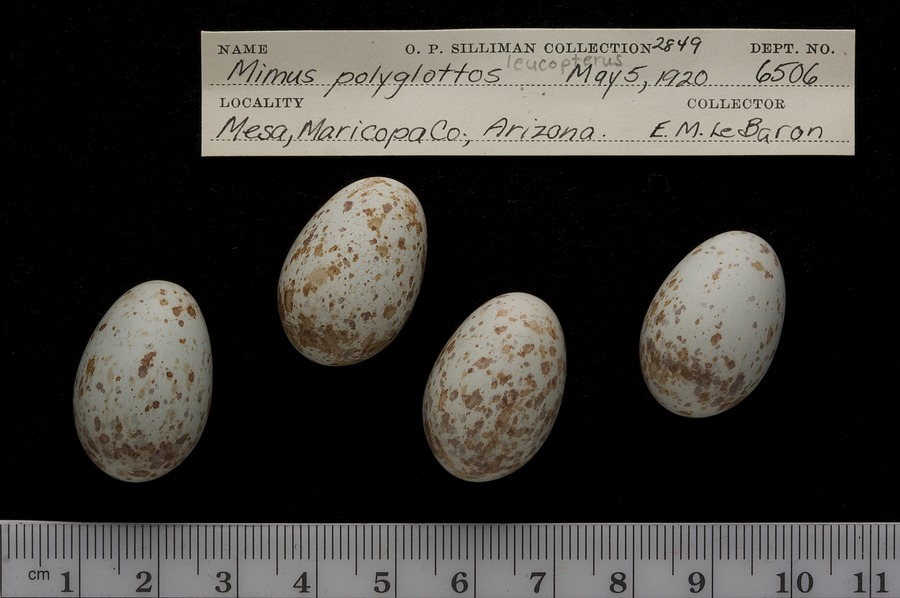 NAME O. P. SILLIMAN COLLECTION 2849 DEPT. NO.
Mimus polyglottos leucopterus May 5, 1920 6506
LOCALITY COLLECTOR
Mesa, Maricopa Co., Arizona. E. M. Le Baron
cm 1 2 3 4 5 6 7 8 9 10 11